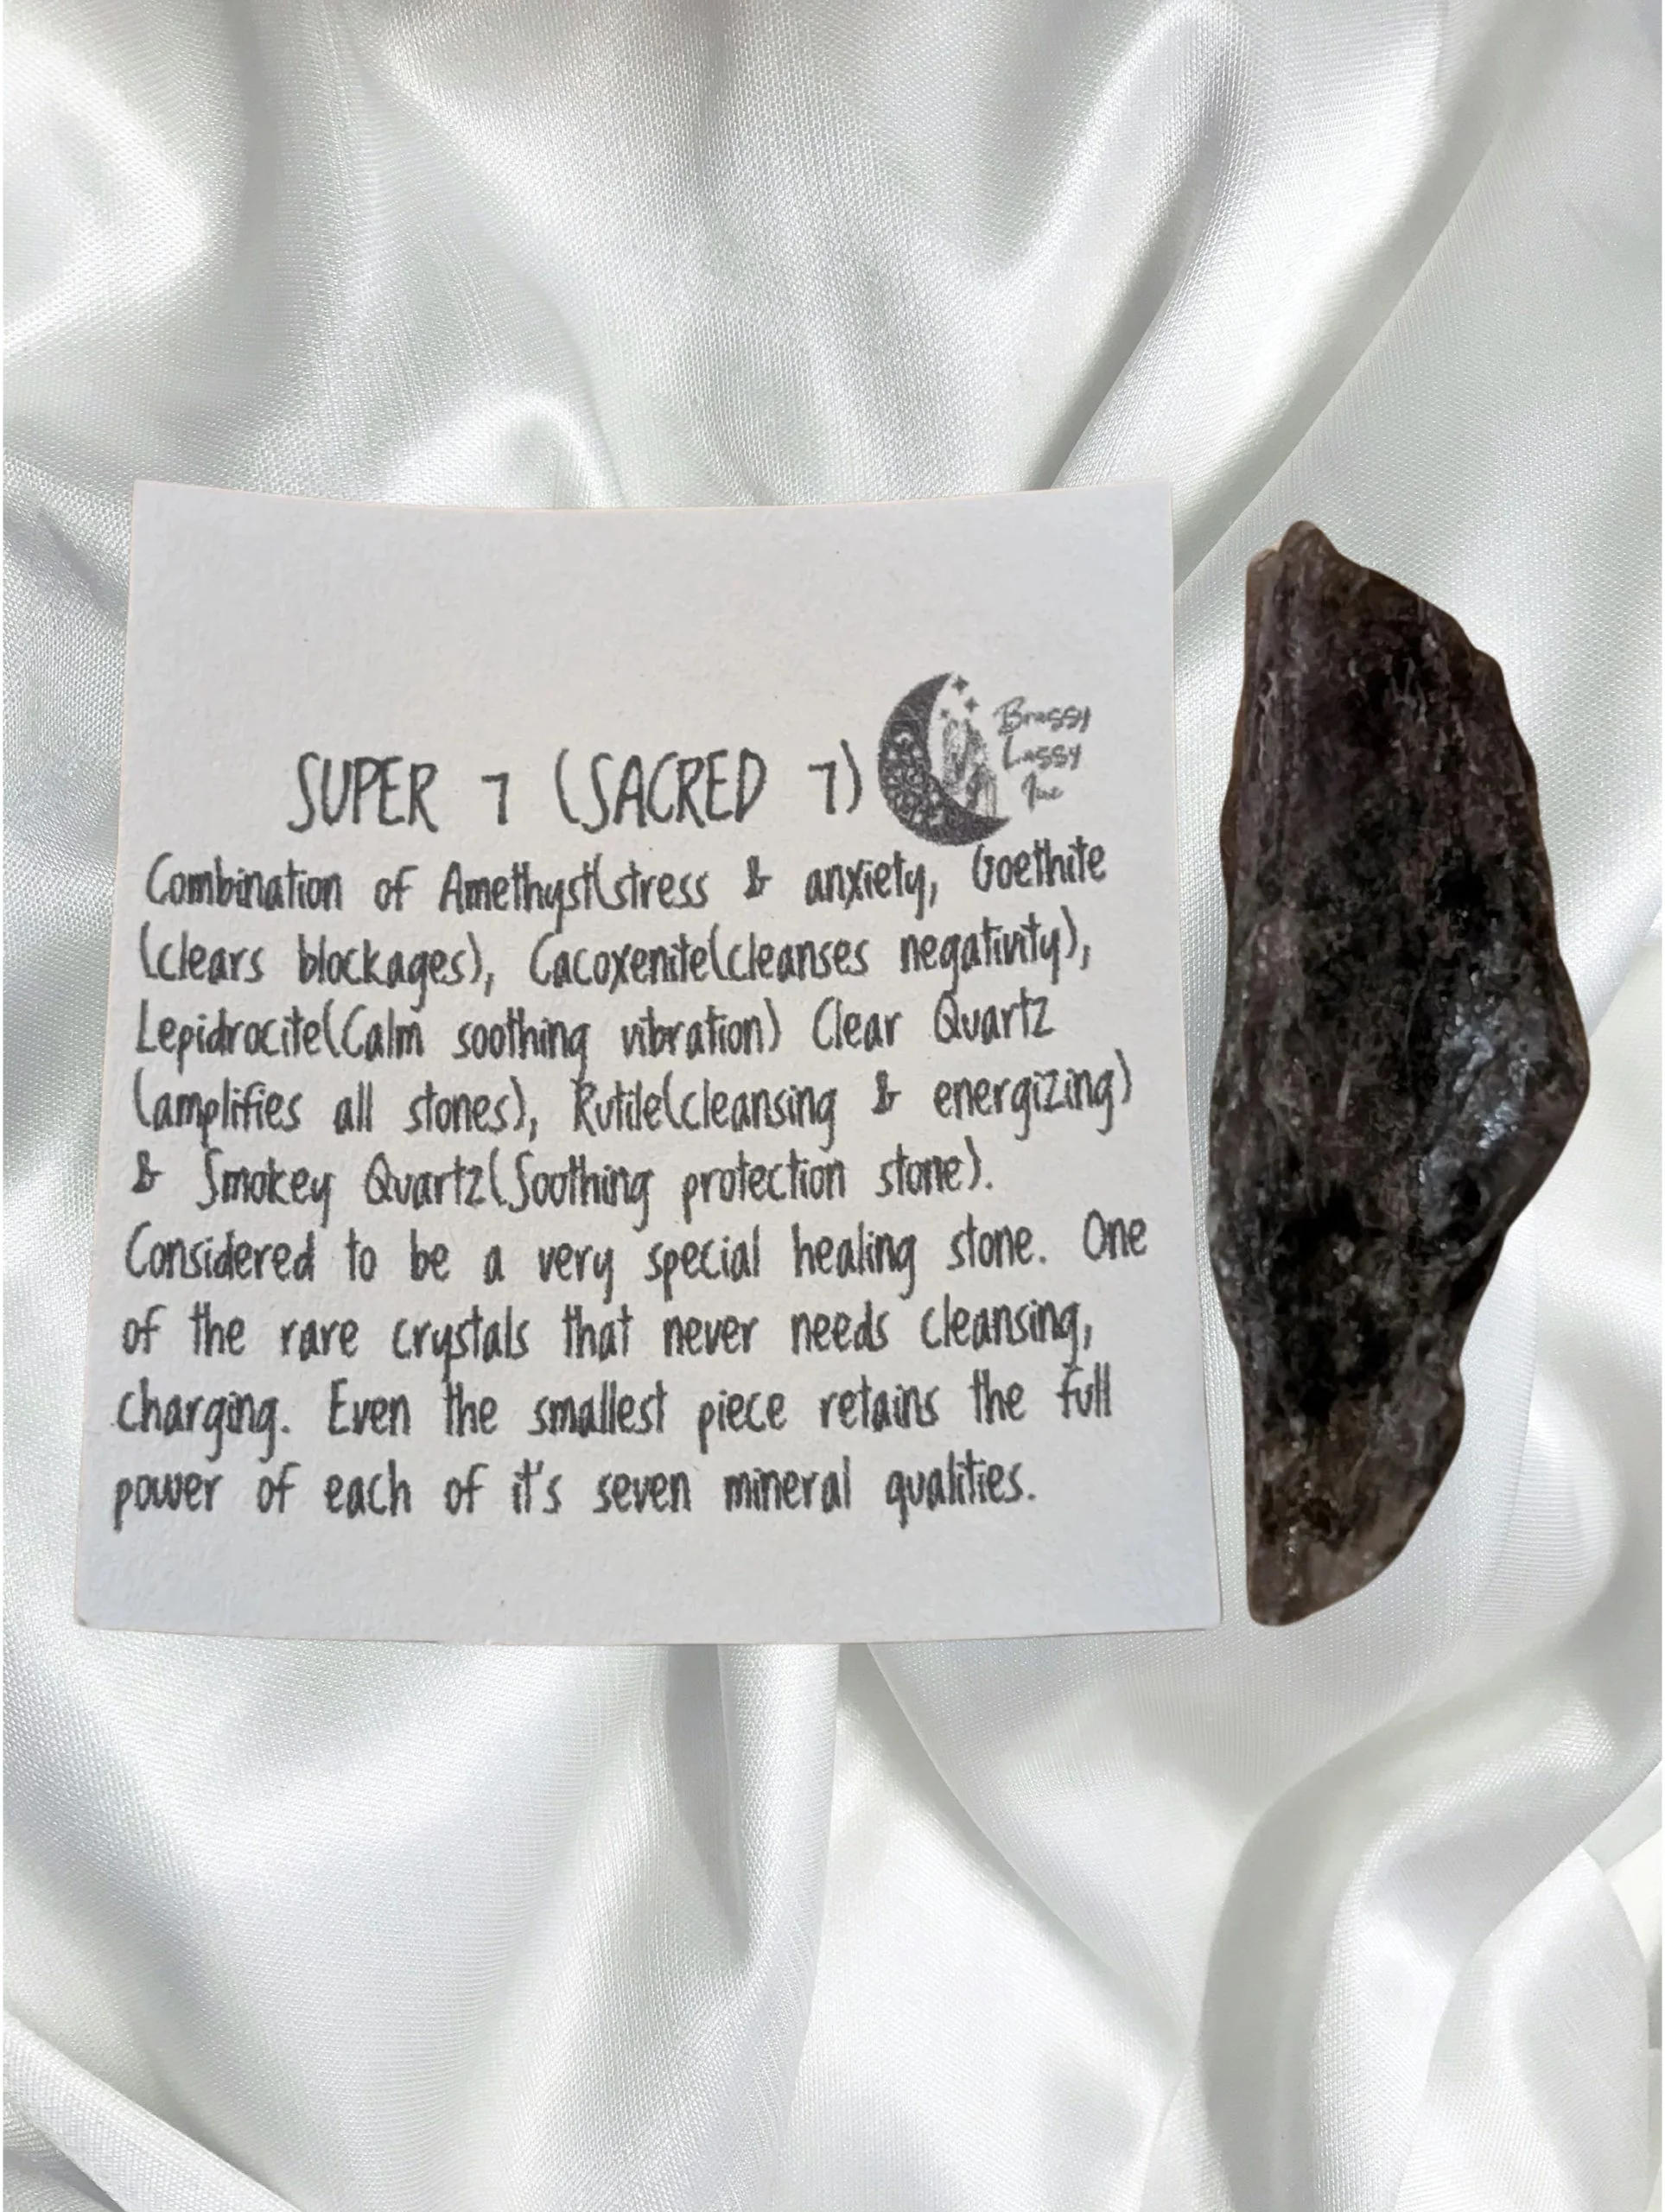 SUPER 7 (SACRED 7)
Brassy
Lassy
Inc
Combination of Amethyst(stress & anxiety, Goethite
(clears blockages), Cacoxenite(cleanses negativity),
Lepidrocite(Calm soothing vibration) Clear Quartz
(amplifies all stones), Rutile(cleansing & energizing)
& Smokey Quartz(Soothing protection stone).
Considered to be a very special healing stone. One
of the rare crystals that never needs cleansing,
charging. Even the smallest piece retains the full
power of each of it's seven mineral qualities.